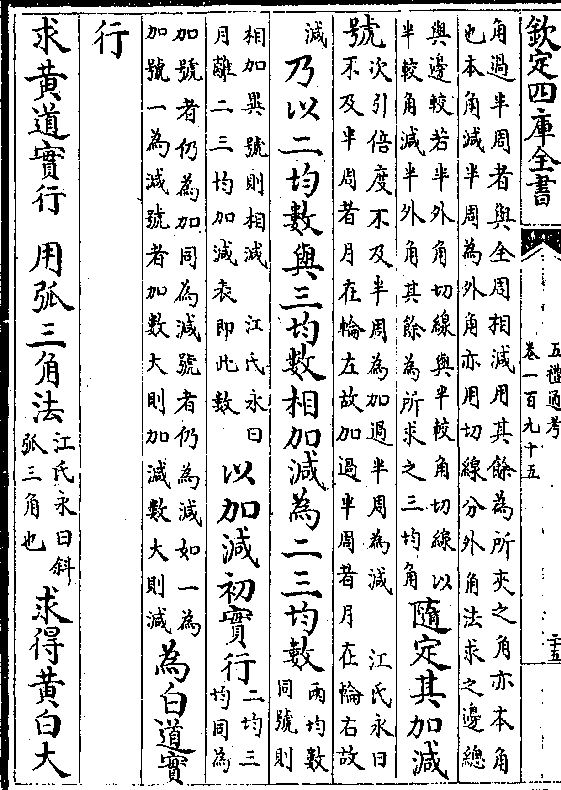 欽定四庫全書
五禮通考
卷一百九十五
二十五
角過半周者與全周相減用其餘為所夾之角亦本角
也本角減半周為外角亦用切線分外角法求之邊總
與邊較若半外角切線與半較角切線以
半較角減半外角其餘為所求之三均角
隨定其加減
號
次引倍度不及半周為加過半周為減 江氏永曰
不及半周者月在輪左故加過半周者月在輪右故
減
乃以二均數與三均數相加減為二三均數
兩均數
同號則
相加異號則相減 江氏永曰
月離二三均加減表即此數
以加減初實行
二均三
均同為
加號者仍為加同為減號者仍為減如一為
加號一為減號者加數大則加減數大則減
為白道實
行
求黃道實行 用弧三角法
江氏永曰斜
弧三角也
求得黃白大